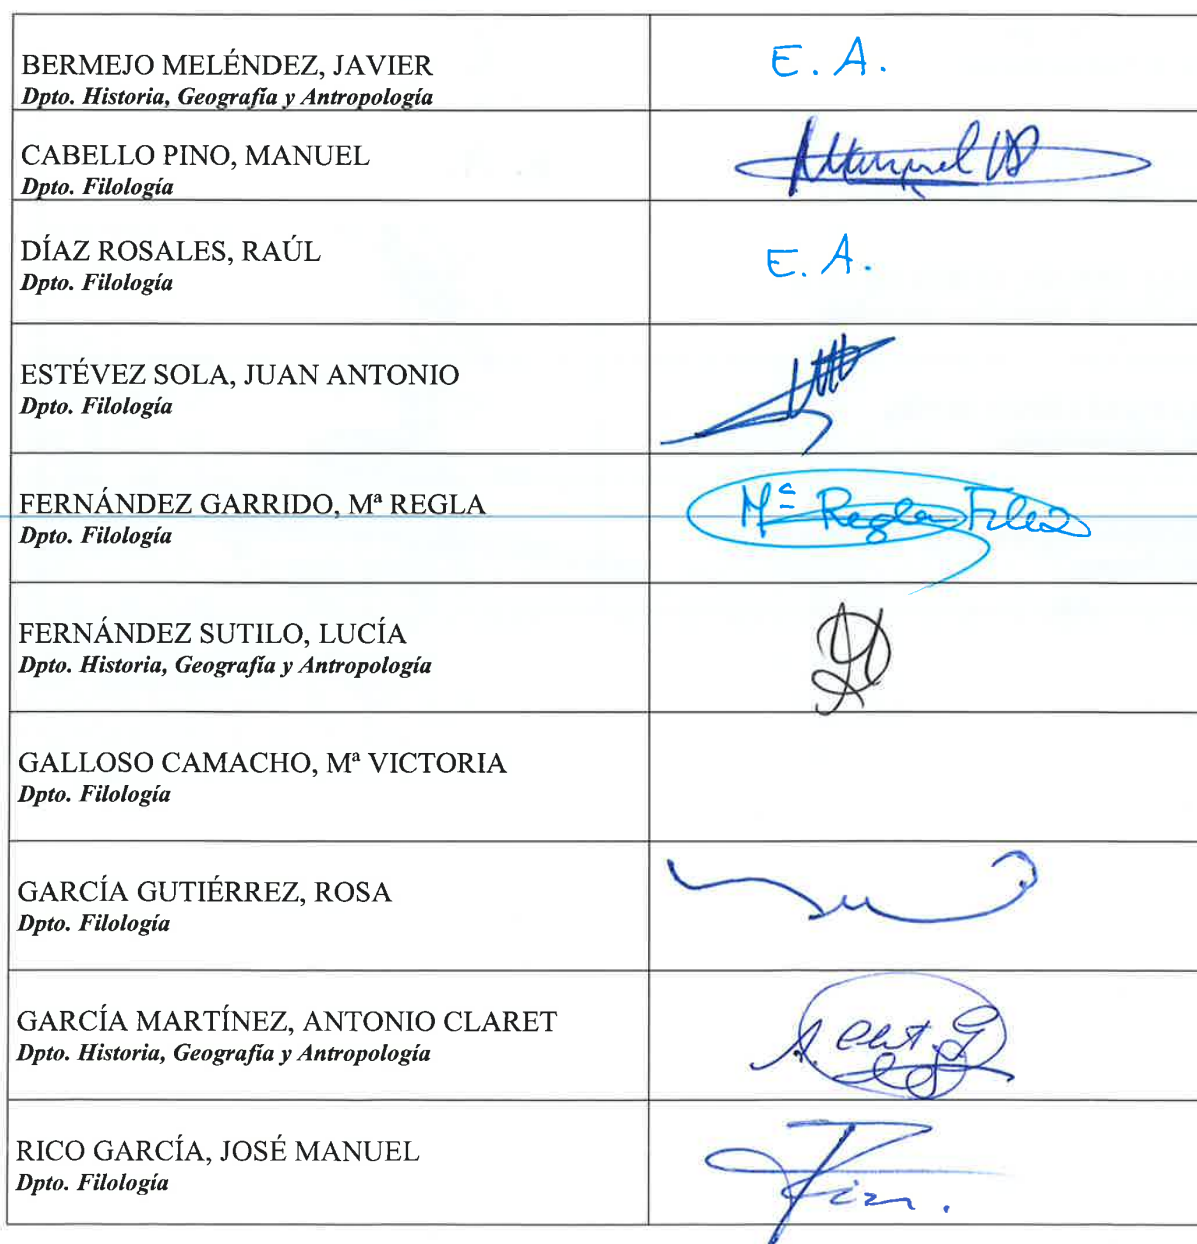 BERMEJO MELÉNDEZ, JAVIER
E. A.
Dpto. Historia, Geografía y Antropología
CABELLO PINO, MANUEL
Manuel
Dpto. Filología
DÍAZ ROSALES, RAÚL
E. A.
Dpto. Filología
ESTÉVEZ SOLA, JUAN ANTONIO
Dpto. Filología
FERNÁNDEZ GARRIDO, Mª REGLA
Mª Regla
Dpto. Filología
FERNÁNDEZ SUTILO, LUCÍA
Dpto. Historia, Geografía y Antropología
GALLOSO CAMACHO, Mª VICTORIA
Dpto. Filología
GARCÍA GUTIÉRREZ, ROSA
Dpto. Filología
GARCÍA MARTÍNEZ, ANTONIO CLARET
Dpto. Historia, Geografía y Antropología
RICO GARCÍA, JOSÉ MANUEL
Dpto. Filología